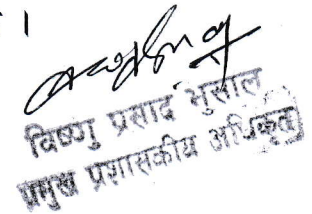 ।
विष्णु प्रसाद भुसाल
प्रमुख प्रशासकीय अधिकृत